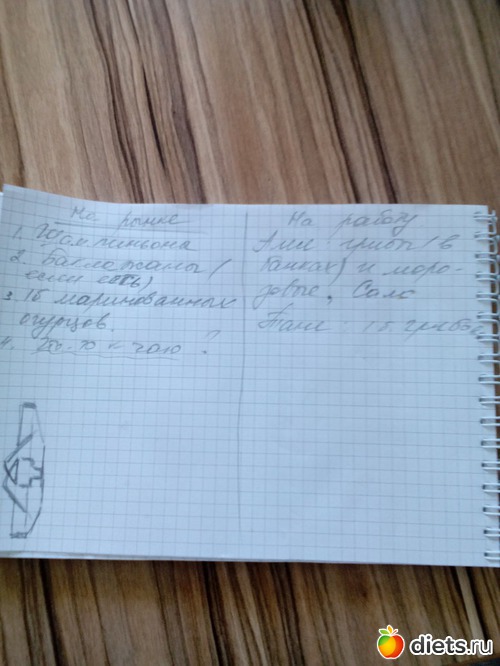 На рынке
1. Шампиньона
2. Баклажаны (
если есть)
3. 1б маринованных
огурцов.
4. что-то к чаю ?
На работу
Ане грибы (в
банках) и моро-
Сало
Тане: 1б грибов
diets.ru